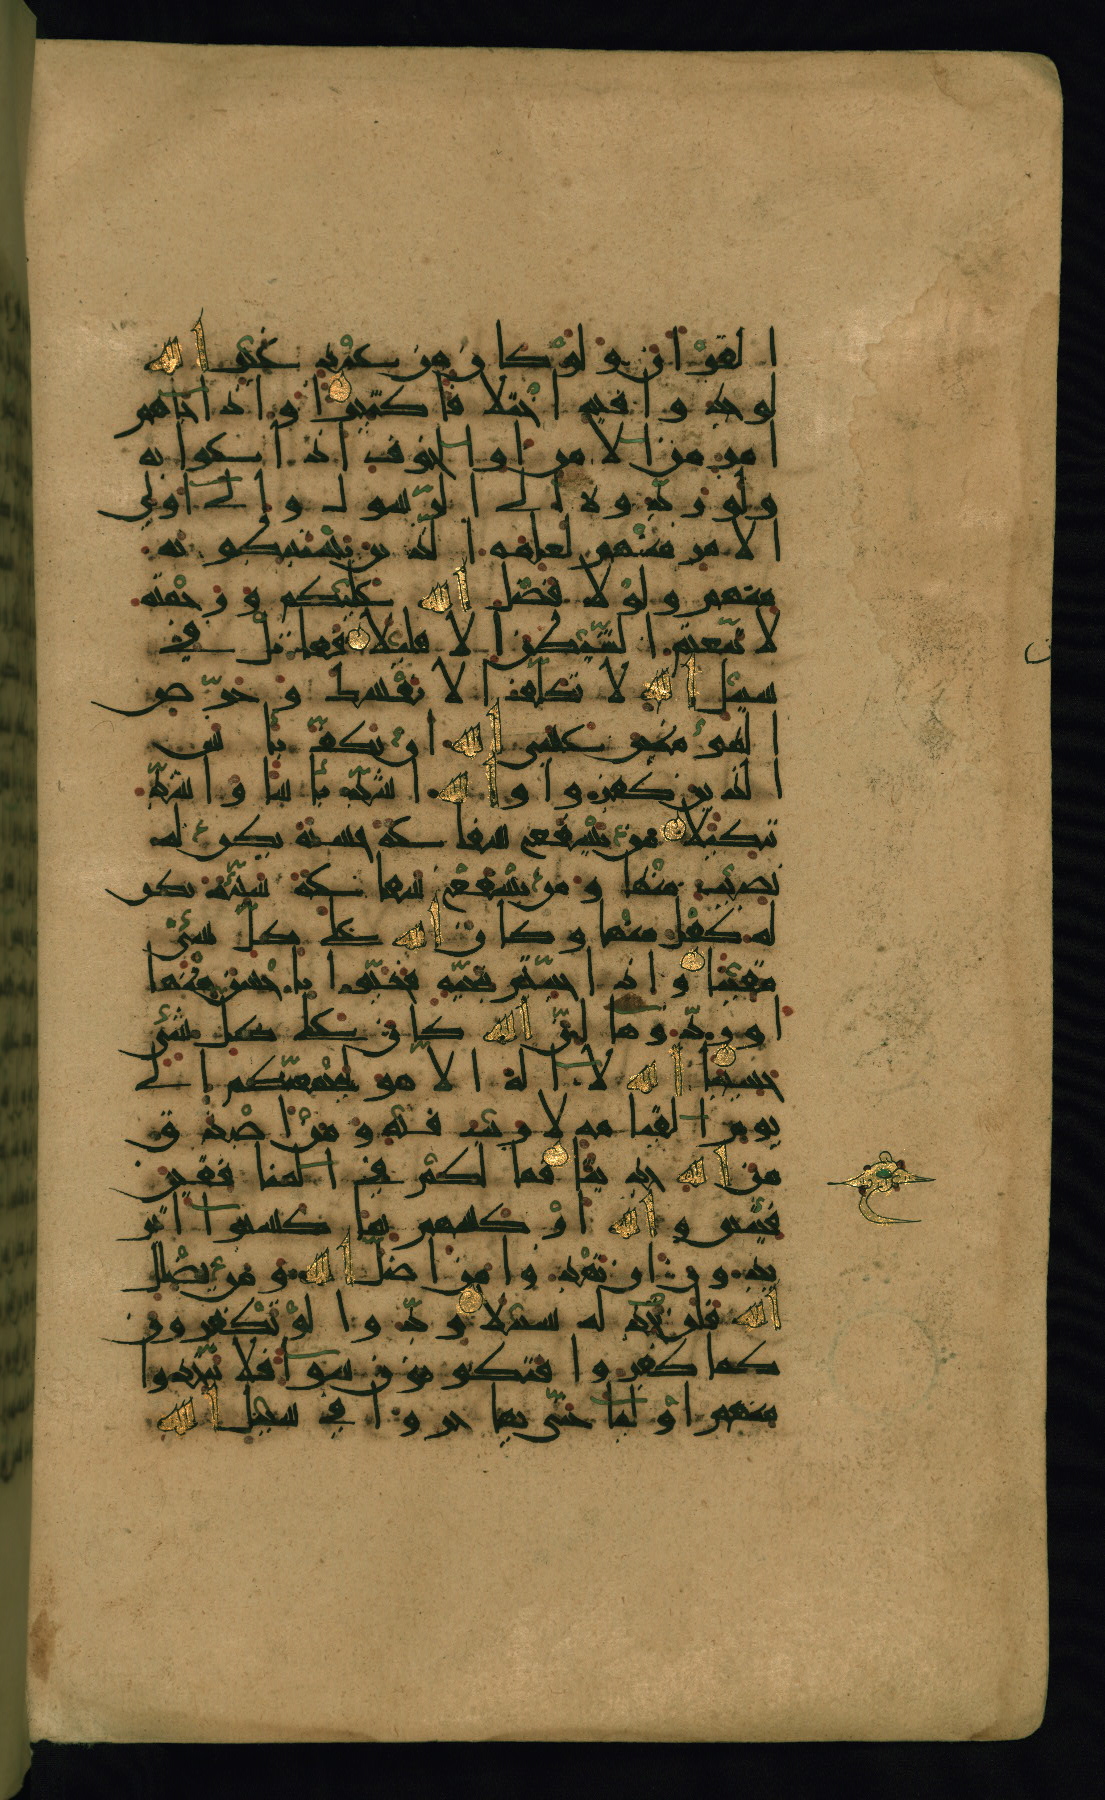 القران ولو كان من عند غير الله
لوجدوا فيه اختلافا كثيرا واذا جاهم
امر من الامن او الخوف اذاعوا به
ولو ردوه الى الرسول والى اولي
الامر منهم لعلمه الذين يستنبطونه
منهم ولولا فضل الله عليكم ورحمته
لاتبعتم الشيطن الا قليلا فقاتل في
سبيل الله لا تكلف الا نفسك وحرض
المؤمنين عسى الله ان يكف باس
الذين كفروا والله اشد باسا واشد
تنكيلا من يشفع شفاعة حسنة يكن له
نصيب منها ومن يشفع شفاعة سيئة يكن
له كفل منها وكان الله على كل شئ
مقيتا واذا حييتم بتحية فحيوا باحسن منها
او ردوها ان الله كان على كل شئ
حسيبا الله لا اله الا هو ليجمعنكم الى
يوم القيامه لا ريب فيه ومن اصدق
من الله حديثا فما لكم في المنافقين
فئتين والله اركسهم بما كسبوا اتر
يدون ان تهدوا من اضل الله ومن يضلل
الله فلن تجد له سبيلا ودوا لو تكفرون
كما كفروا فتكونون سوا فلا تتخذوا
منهم اوليا حتى يهاجروا في سبيل الله